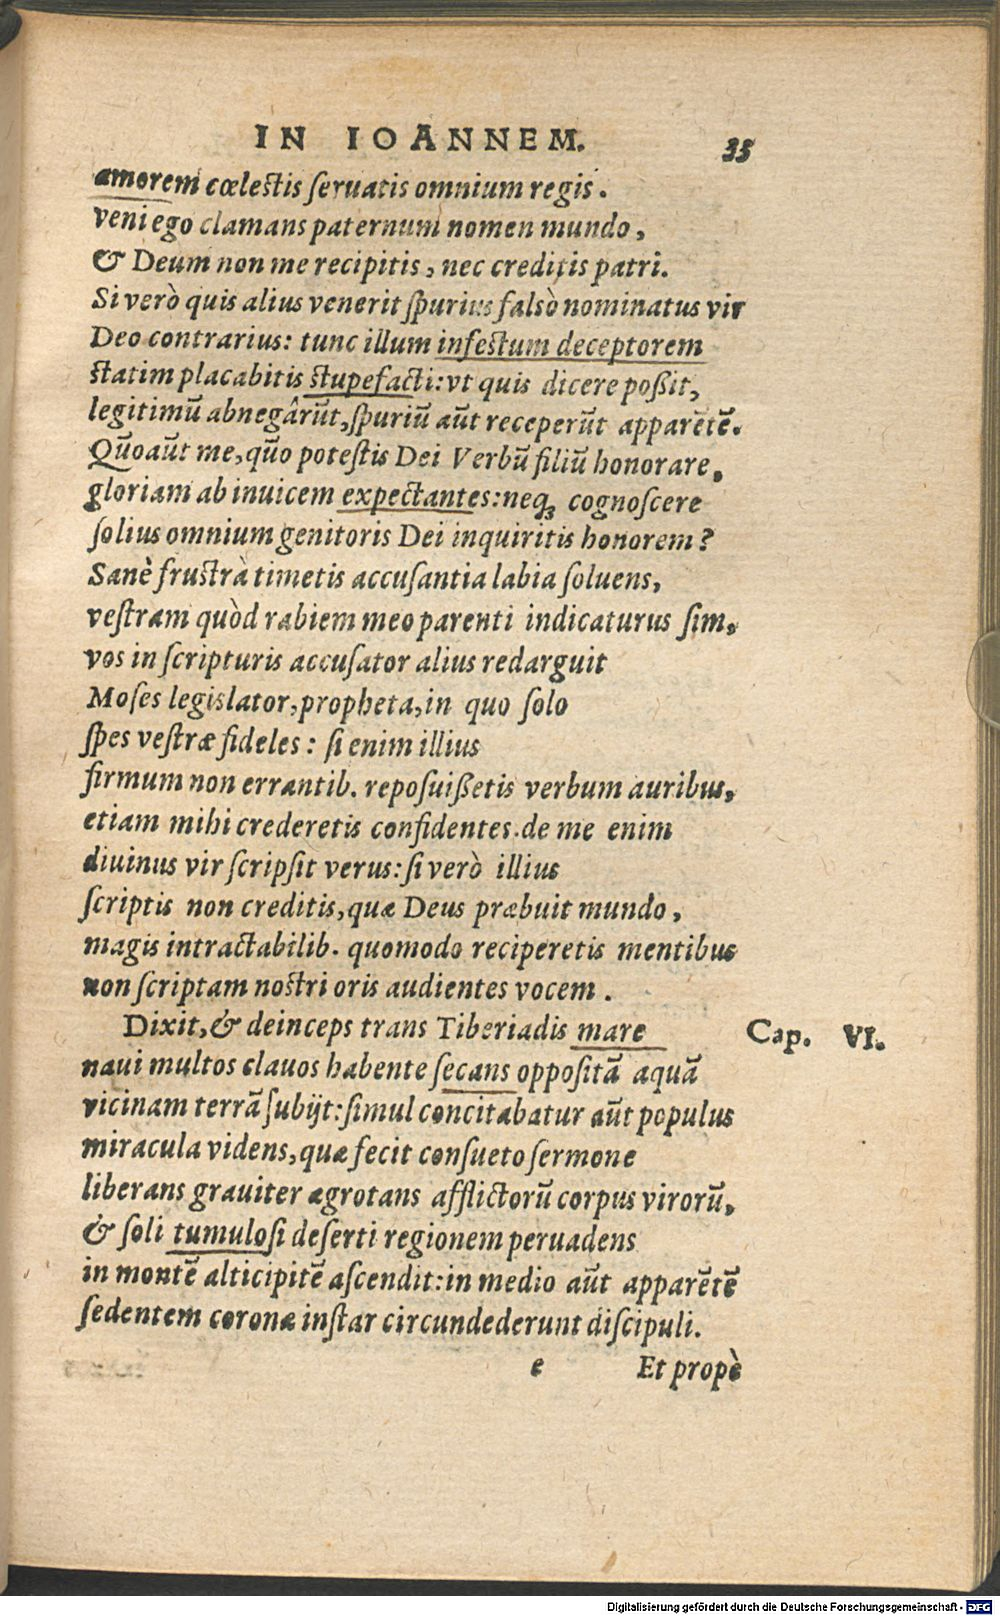 IN IOANNEM. 35
amorem cœlestis seruatis omnium regis.
veni ego clamans paternum nomen mundo,
& Deum non me recipitis, nec creditis patri.
Si verò quis alius venerit spurius falsò nominatus vir
Deo contrarius: tunc illum infestum deceptorem
statim placabitis stupefacti: vt quis dicere poßit,
legitimū abnegârūt, spuriū aūt receperūt apparētē.
Quōaūt me, quō potestis Dei Verbū filiū honorare,
gloriam ab inuicem expectantes: neq; cognoscere
solius omnium genitoris Dei inquiritis honorem?
Sanè frustrà timetis accusantia labia soluens,
vestram quòd rabiem meo parenti indicaturus sim,
vos in scripturis accusator alius redarguit
Moses legislator, propheta, in quo solo
spes vestræ fideles: si enim illius
firmum non errantib. reposuißetis verbum auribus,
etiam mihi crederetis confidentes. de me enim
diuinus vir scripsit verus: si verò illius
scriptis non creditis, quæ Deus præbuit mundo,
magis intractabilib. quomodo reciperetis mentibus
non scriptam nostri oris audientes vocem.
Dixit, & deinceps trans Tiberiadis mare Cap. VI.
naui multos clauos habente secans oppositā aquā
vicinam terrā subijt: simul concitabatur aūt populus
miracula videns, quæ fecit consueto sermone
liberans grauiter ægrotans afflictorū corpus virorū,
& soli tumulosi deserti regionem peruadens
in montē alticipitē ascendit: in medio aūt apparētē
sedentem coronæ instar circundederunt discipuli.
e Et propè
Digitalisierung gefördert durch die Deutsche Forschungsgemeinschaft - DFG